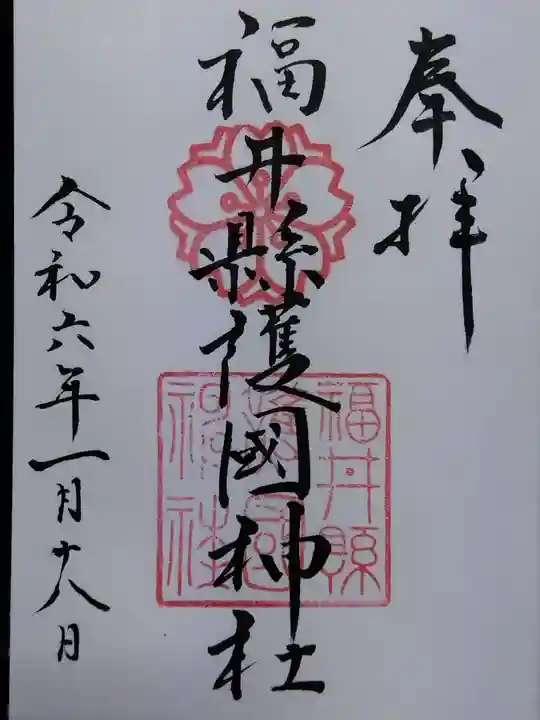 奉拝
福井縣護國神社
福井縣護國神社
令和六年一月十八日